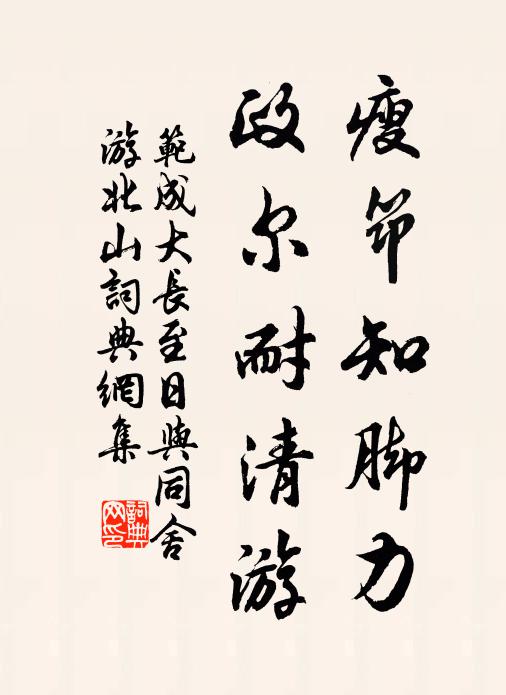 瘦筇知脚力
政尔耐清游
範成大長至日與同舍
游北山詞典網集
詞典
网印